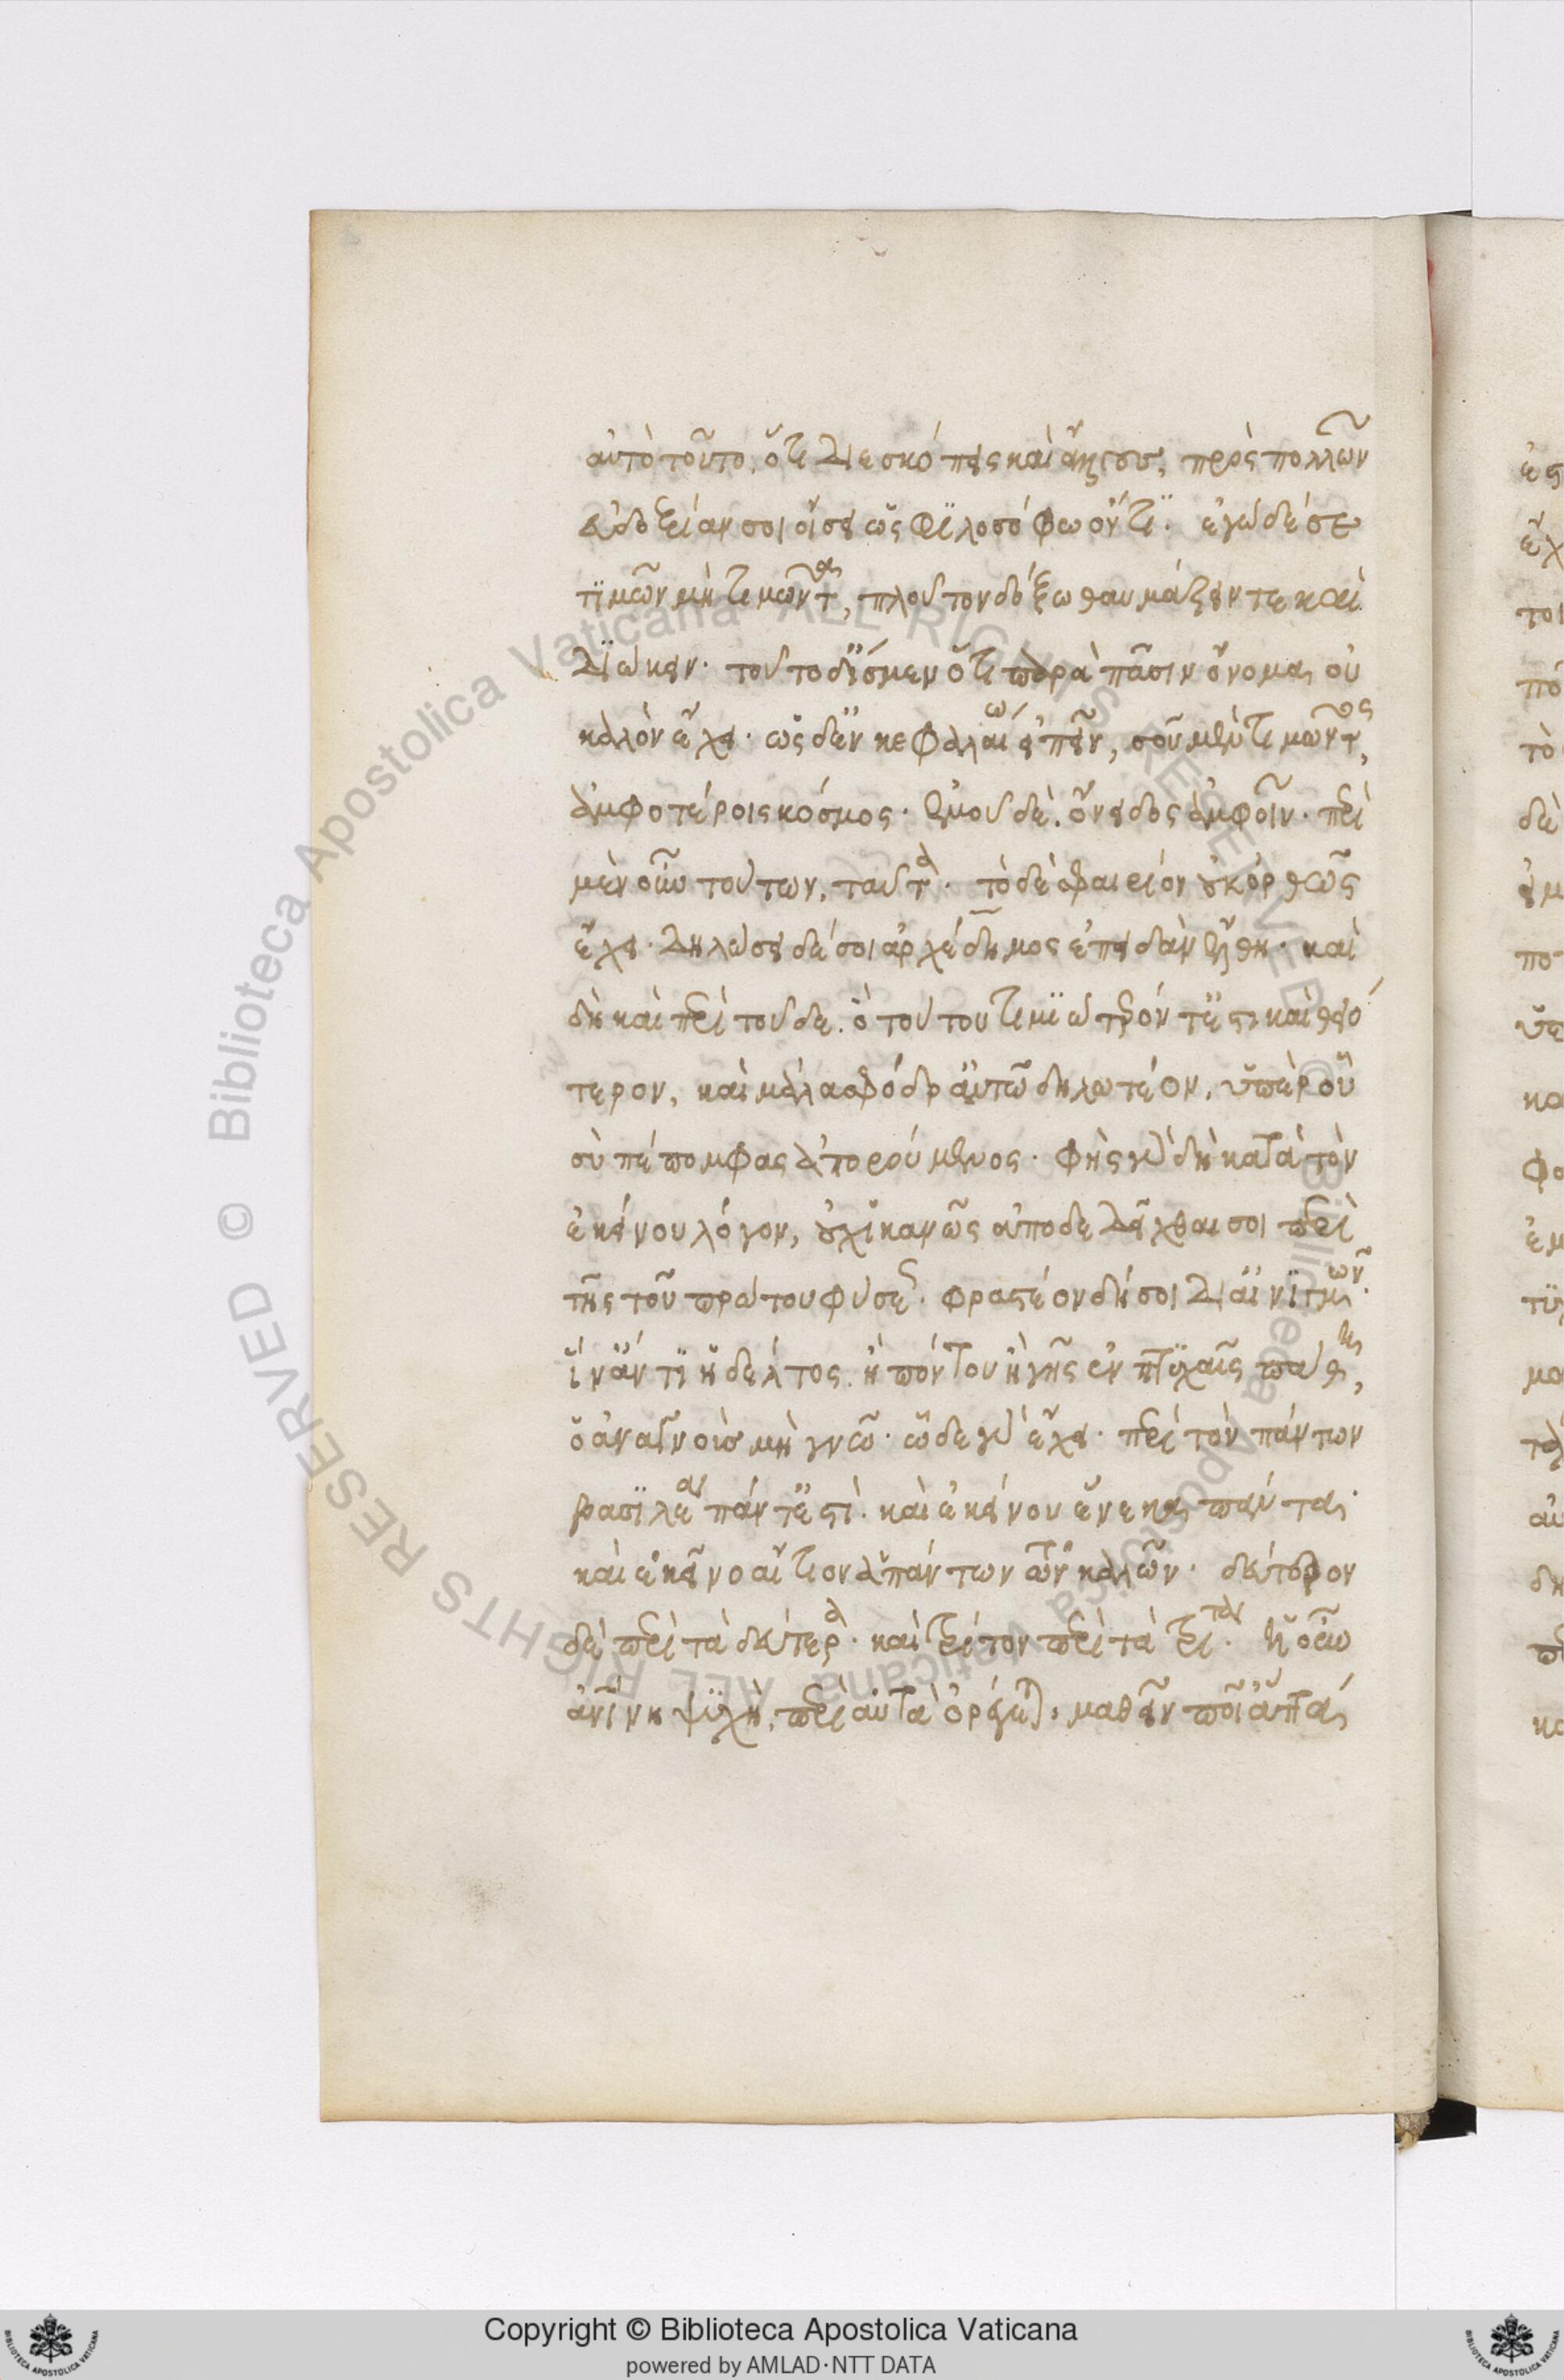 αὐτὸ τοῦτο, ὅτι διεσκόπεις καὶ ἤκουσας, πρὸς πολλῶν
εὐδοξίαν σοι οἴσει ὡς φϊλοσόφω ὄντϊ. ἐγὼ δέ σε
τϊμῶν μὴ τιμῶντα, πλοῦτον δόξω θαυμάζειν τε καὶ
διώκειν. τοῦτο δ' ἴσμεν ὅτι παρὰ πᾶσιν ὄνομα οὐ
καλὸν ἔχει. ὡς δ' ἐν κεφαλαίω εἰπεῖν, σοῦ μὲν τιμῶντος,
ἀμφοτέροις κόσμος. ἐμοῦ δὲ, ὄνειδος ἀμφοῖν. περὶ
μὲν οὖν τούτων, ταῦτα. τὸ δὲ σφαιρίον οὐκ ὀρθῶς
ἔχει. δηλώσει δέ σοι ἀρχέδημος ἐπειδὰν ἔλθη. καὶ
δὴ καὶ περὶ τοῦδε. ὃ τούτου τιμϊώτερόν τ' ἐστι καὶ θειό
τερον, καὶ μάλα σφόδρ' αὐτῶ δηλωτέον, ὑπὲρ οὗ
σὺ πέπομφας ἀπορούμενος. φὴς γὰρ δὴ κατὰ τὸν
ἐκείνου λόγον, οὐχ ἱκανῶς ἀποδεδεῖχθαι σοι περὶ
τῆς τοῦ πρώτου φύσεως. φραστέον δή σοι δι' αἰνϊγμῶν.
ἵν' ἄν τϊ ἡ δέλτος ἢ πόντου ἢ γῆς ἐν πτϋχαῖς πάθη,
ὁ ἀναγνοὺς μὴ γνῶ. ὧδε γὰρ ἔχει. περὶ τὸν πάντων
βασϊλέα πάντ' ἐστὶ. καὶ ἐκείνου ἕνεκα πάντα.
καὶ ἐκεῖνο αἴτιον ἁπάντων τῶν καλῶν. δεύτερον
δὲ περὶ τὰ δεύτερα. καὶ τρίτον περὶ τὰ τρίτα. ἡ οὖν
ἀνθρωπίνη ψϋχὴ, περὶ αὐτὰ ὀρέγεται μαθεῖν ποῖ' ἄττα